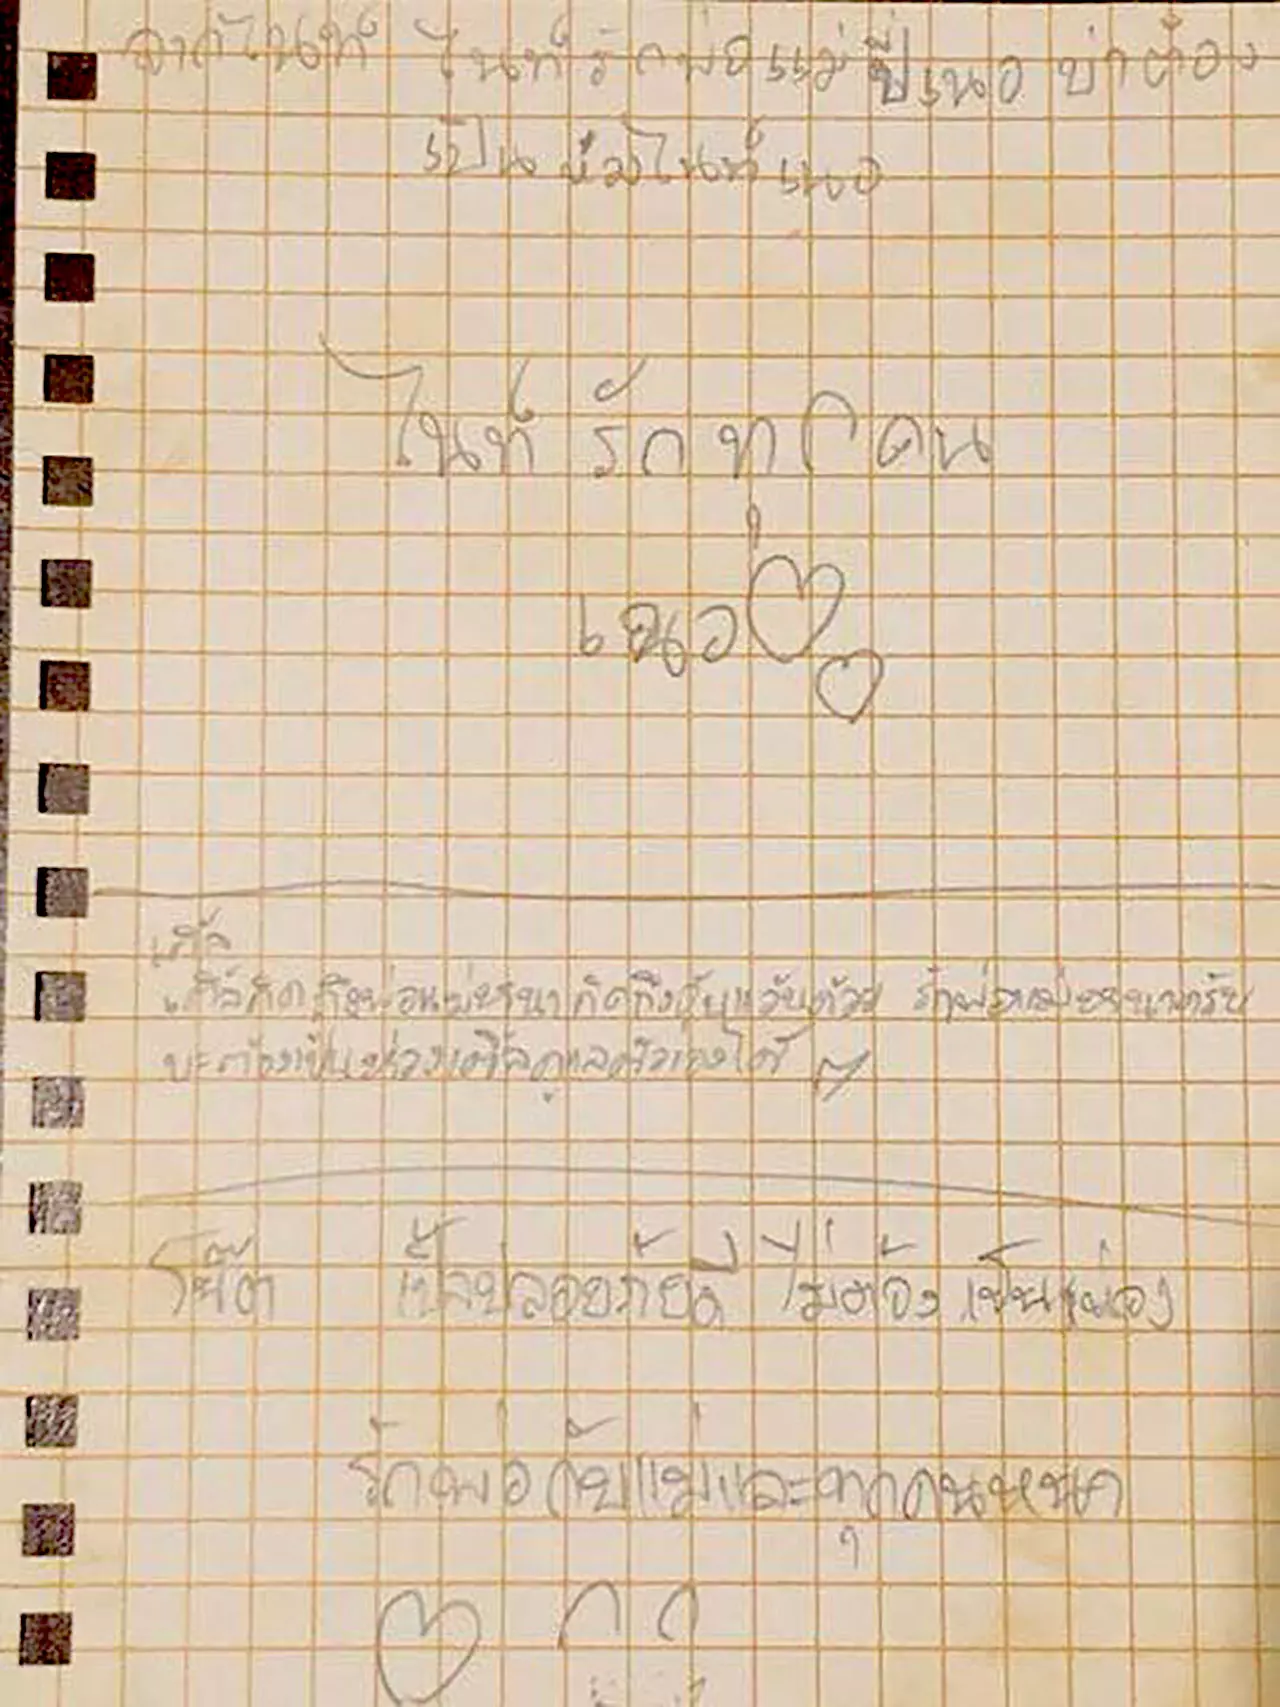 จากไนท์ ไนท์รักพ่อแม่ปี่เนอ บ่าต้อง
เป็นห่วงไนท์เนอ
ไนท์ รักทุกคน
เน้อ
เติ้ล
เติ้ลคิดถึงพ่อแม่ คิดถึง ด้วย รักพ่อแม่ ครับ
บะต้องเป็นห่วงเติ้ลดูแลตัวเองได้
โน๊ต เป้ปลอยภัยดี ไม่ต้องเป็นห่วง
รักพ่อกับแม่และทุกคนหนา